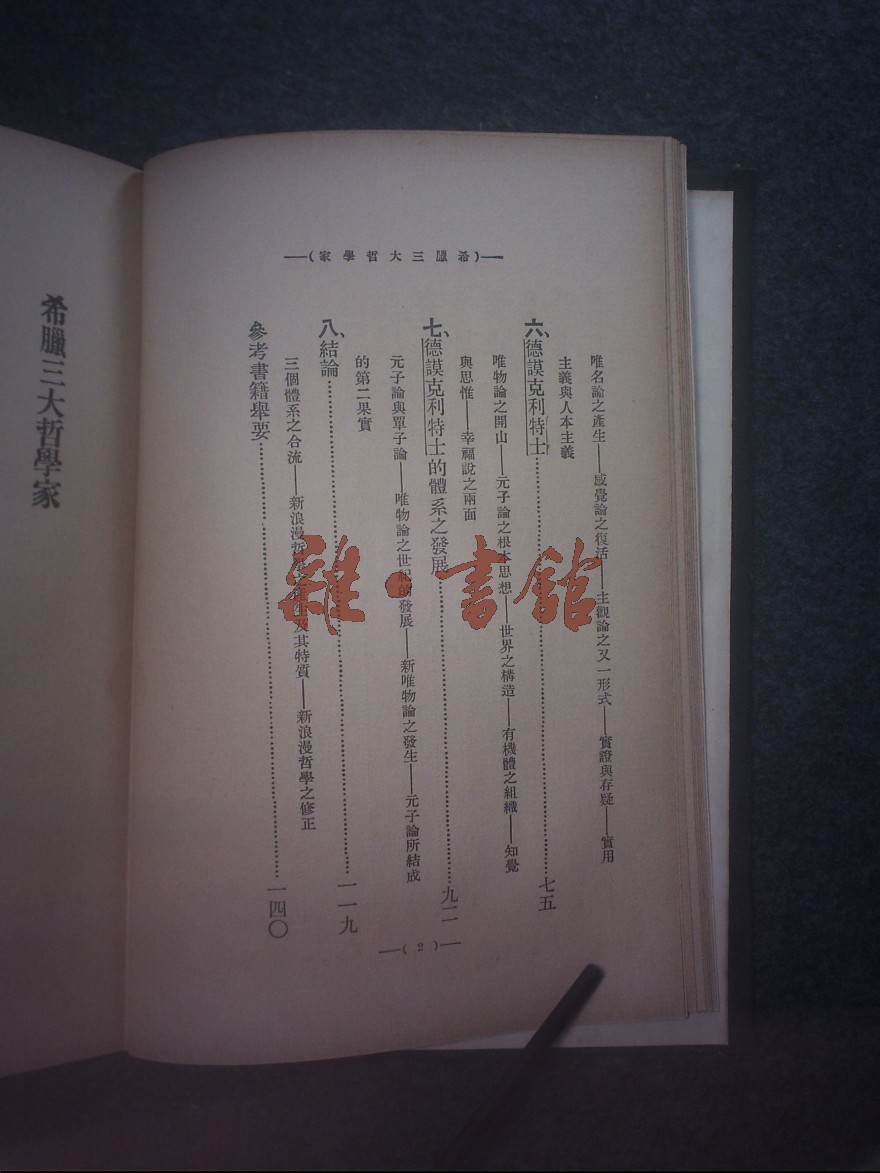 —(希臘三大哲學家)—
唯名論之產生——感覺論之復活——主觀論之又一形式——實證與存疑——實用
主義與人本主義
六、德謨克利特士……七五
唯物論之開山——元子論之根本思想——世界之構造——有機體之組織——知覺
與思惟——幸福說之兩面
七、德謨克利特士的體系之發展……九二
元子論與單子論——唯物論之世紀的發展——新唯物論之發生——元子論所結成
的第二果實
八、結論……一一九
三個體系之合流——新浪漫哲學之產生及其特質——新浪漫哲學之修正
參考書籍舉要……一四〇
—(2)—
希臘三大哲學家
雜·書館